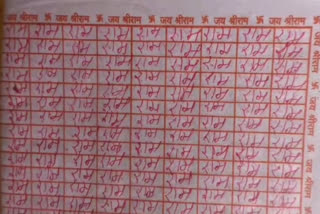 जय श्रीराम 卐 जय श्रीराम 卐 जय श्रीराम 卐 जय श्रीराम 卐
राम राम राम राम राम राम राम राम राम
राम राम राम राम राम राम राम राम राम
राम राम राम राम राम राम राम राम राम
राम राम राम राम राम राम राम राम राम
राम राम राम राम राम राम राम राम राम
राम राम राम राम राम राम राम राम राम
राम राम राम राम राम राम राम राम राम
राम राम राम राम राम राम राम राम राम
राम राम राम राम राम राम राम राम राम
राम राम राम राम राम राम राम राम राम
राम राम राम राम राम राम राम राम राम
राम राम राम राम राम राम राम राम राम
राम राम राम राम राम राम राम राम राम
जय श्रीराम 卐 जय श्रीराम 卐 जय श्रीराम